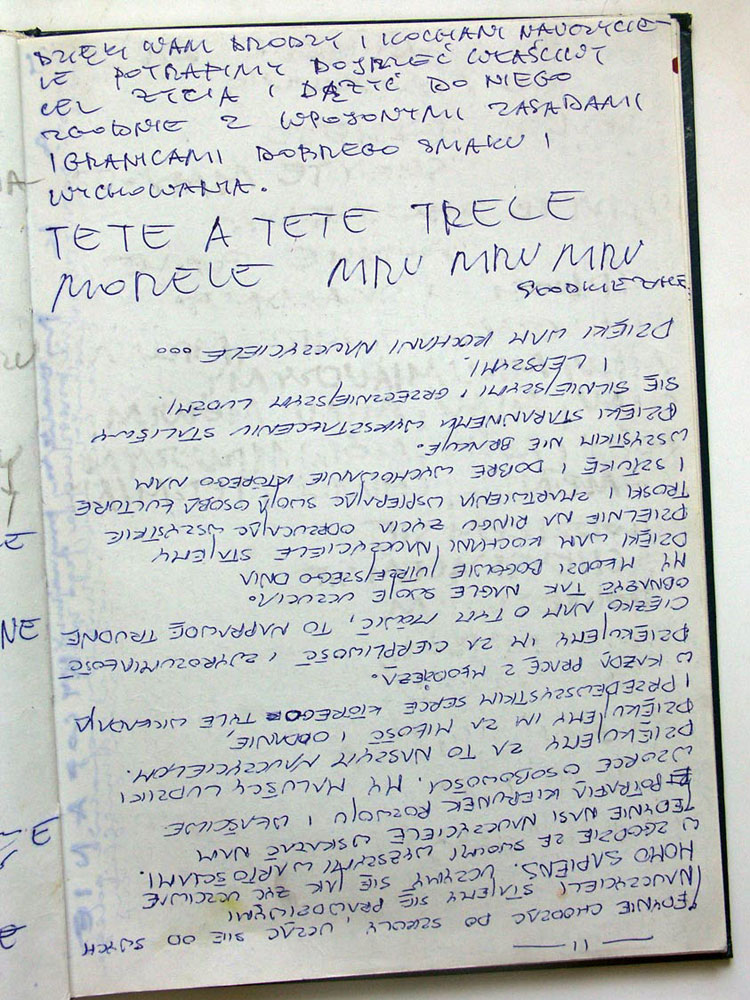 DZIĘKI WAM DRODZY I KOCHANI NAUCZYCIE-
LE POTRAFIMY DOJRZEĆ WŁAŚCIWY
CEL ŻYCIA I DĄŻYĆ DO NIEGO
ZGODNIE Z WPOJONYMI ZASADAMI
I GRANICAMI DOBREGO SMAKU I
WYCHOWANIA.
TETE A TETE TRELE
MORELE MRU MRU MRU
— 11 —
JEDYNIE CHODZĄC DO SZKOŁY, UCZĄC SIĘ OD SWYCH
NAUCZYCIELI STAJEMY SIĘ PRAWDZIWYMI
HOMO SAPIENS. UCZYMY SIĘ JAK ŻYĆ UCZCIWIE
W ZGODZIE ZE SWOIMI WYŻSZYMI WARTOŚCIAMI.
JEDYNIE NASI NAUCZYCIELE WSKAZAĆ NAM
POTRAFIĄ KIERUNEK ROZWOJU I WŁAŚCIWE
WZORCE OSOBOWOŚCI. MY MALUŚCY LUDZIKI
DZIĘKUJEMY ZA TO NASZYM NAUCZYCIELOM.
DZIĘKUJEMY IM ZA MIŁOŚĆ I ODDANIE,
I PRZEDEWSZYSTKIM SERCE KTÓREGO TYLE WKŁADAJĄ
W KAŻDĄ PRACĘ Z MŁODZIEŻĄ.
DZIĘKUJEMY IM ZA CIERPLIWOŚĆ I WYROZUMIAŁOŚĆ
CIĘŻKO NAM O TYM MÓWIĆ, TO NAPRAWDĘ TRUDNE
OBNAŻAĆ TAK NAGLE SWOJE UCZUCIA.
MY MŁODZI BOGOWIE JUTRZEJSZEGO DNIA
DZIĘKI WAM KOCHANI NAUCZYCIELE STAJEMY
DZIELNIE NA RINGU ŻYCIA ODRZUCAJĄC WSZYSTKIE
TROSKI I ZMARTWIENIA WSPIERAJĄC SWOJĄ OSOBĄ KULTURĘ
I SZTUKĘ I DOBRE WYCHOWANIE KTÓREGO NAM
WSZYSTKIM NIE BRAKUJE.
DZIĘKI STARANNEMU WYKSZTAŁCENIU STALIŚMY
SIĘ SILNIEJSZYMI, GRZECZNIEJSZYMI LUDZMI
I LEPSZYMI.
DZIĘKI WAM KOCHANI NAUCZYCIELE ...